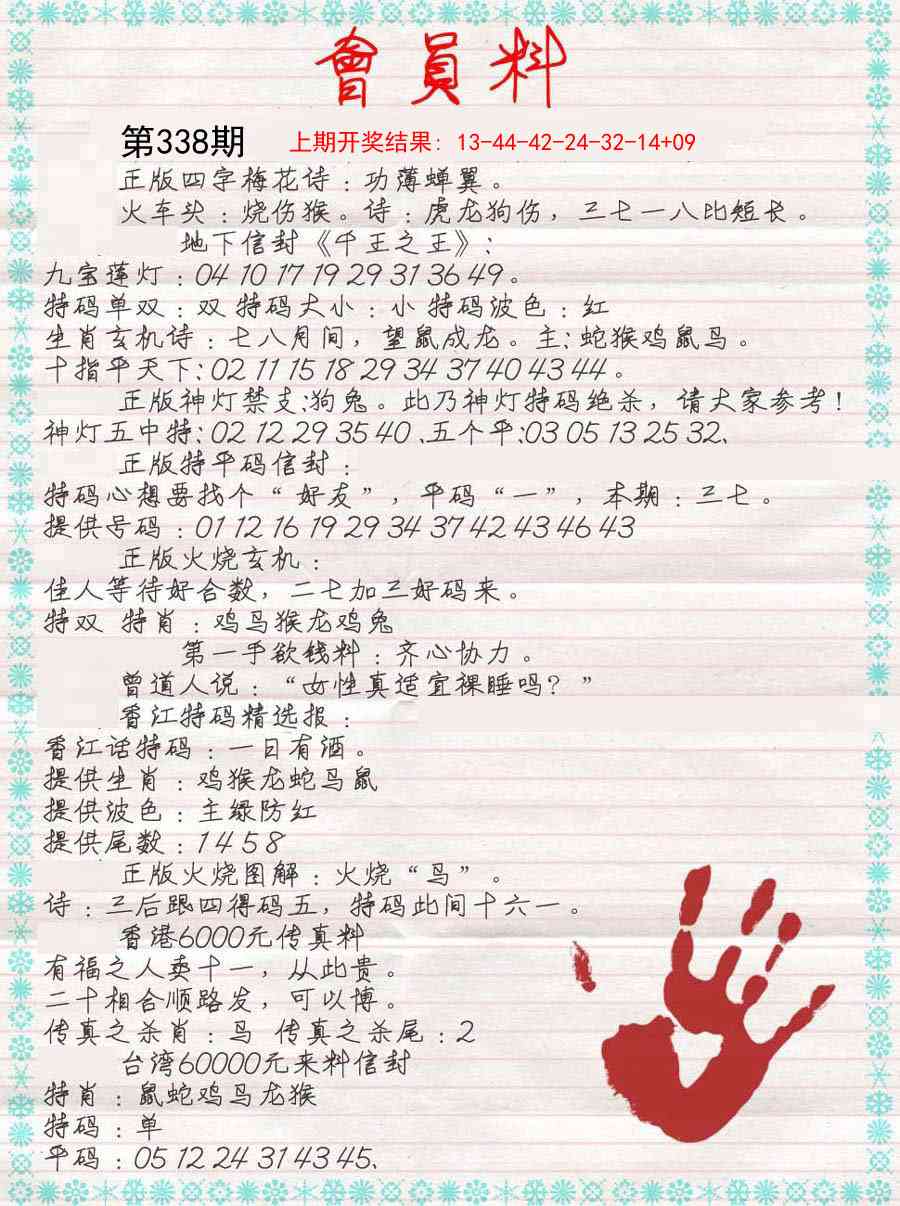 會員料
第338期 上期开奖结果：13-44-42-24-32-14+09
正版四字梅花诗：功薄蝉翼。
火车头：烧伤猴。诗：虎龙狗伤，三七一八比短长。
地下信封《千王之王》：
九宝莲灯：04 10 17 19 29 31 36 49。
特码单双：双 特码大小：小 特码波色：红
生肖玄机诗：七八月间，望鼠成龙。主：蛇猴鸡鼠马。
十指平天下：02 11 15 18 29 34 37 40 43 44。
正版神灯禁支:狗兔。此乃神灯特码绝杀，请大家参考！
神灯五中特：02 12 29 35 40、五个平:03 05 13 25 32、
正版特平码信封：
特码心想要找个“好友”，平码“一”，本期：三七。
提供号码：01 12 16 19 29 34 37 42 43 46 43
正版火烧玄机：
佳人等待好合数，二七加三好码来。
特双 特肖：鸡马猴龙鸡兔
第一手欲钱料：齐心协力。
曾道人说：“女性真适宜裸睡吗？”
香江特码精选报：
香江话特码：一日有酒。
提供生肖：鸡猴龙蛇马鼠
提供波色：主绿防红
提供尾数：1 4 5 8
正版火烧图解：火烧“鸟”。
诗：三后跟四得码五，特码此间十六一。
香港6000元传真料
有福之人卖十一，从此贵。
二十相合顺路发，可以博。
传真之杀肖：马 传真之杀尾：2
台湾60000元来料信封
特肖：鼠蛇鸡马龙猴
特码：单
平码：05 12 24 31 43 45、